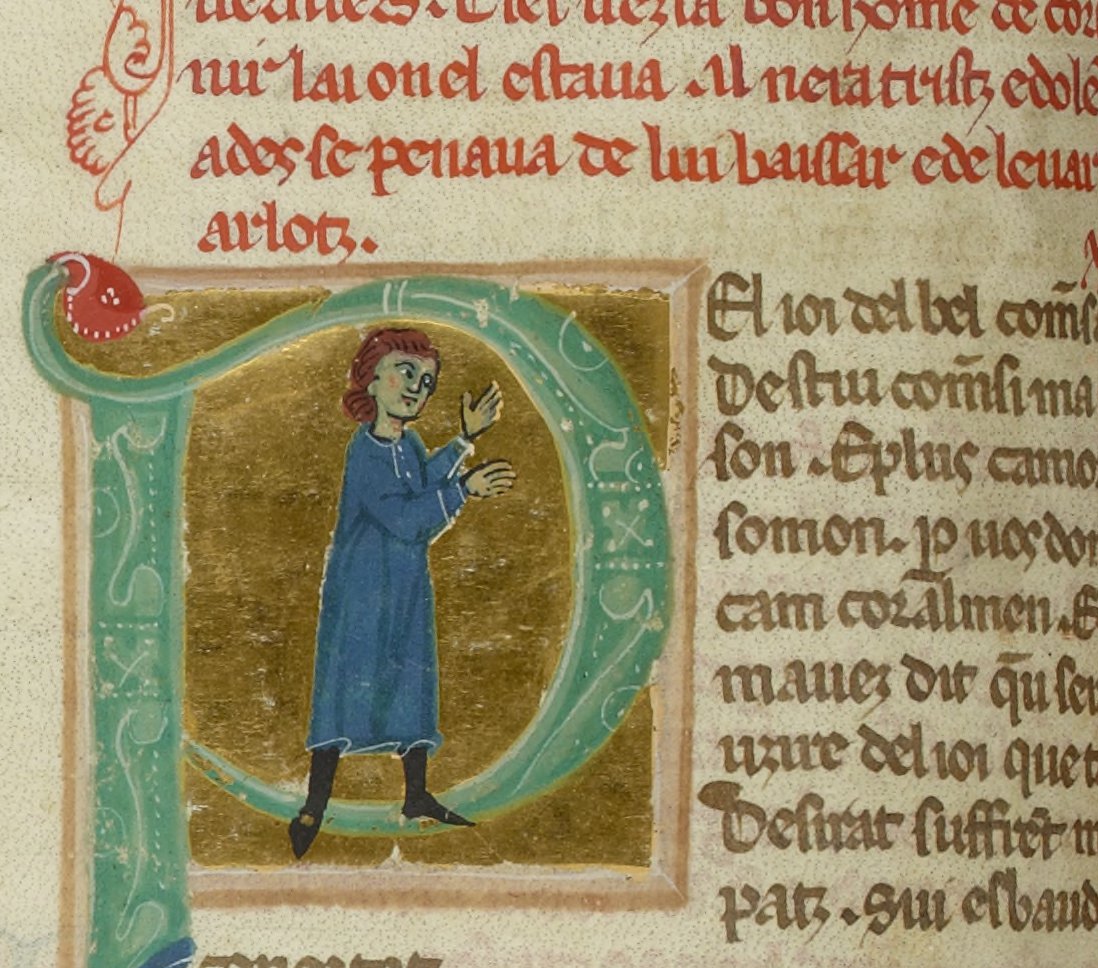 uenguers. Ciel uezia bon home de cor
nir lai on el estaua. Al n era tristz e dolē
ades se penaua de lui baissar e de leuar
arlotz.
P
El ioi del bel com̄s
Destiu com̄si ma
son. E plus camo
somon. p uos don
cam coralmen. E
mauez dit q̄u ser
uzire del ioi que t
Desirat suffrēt m
patz. Sui esbaud